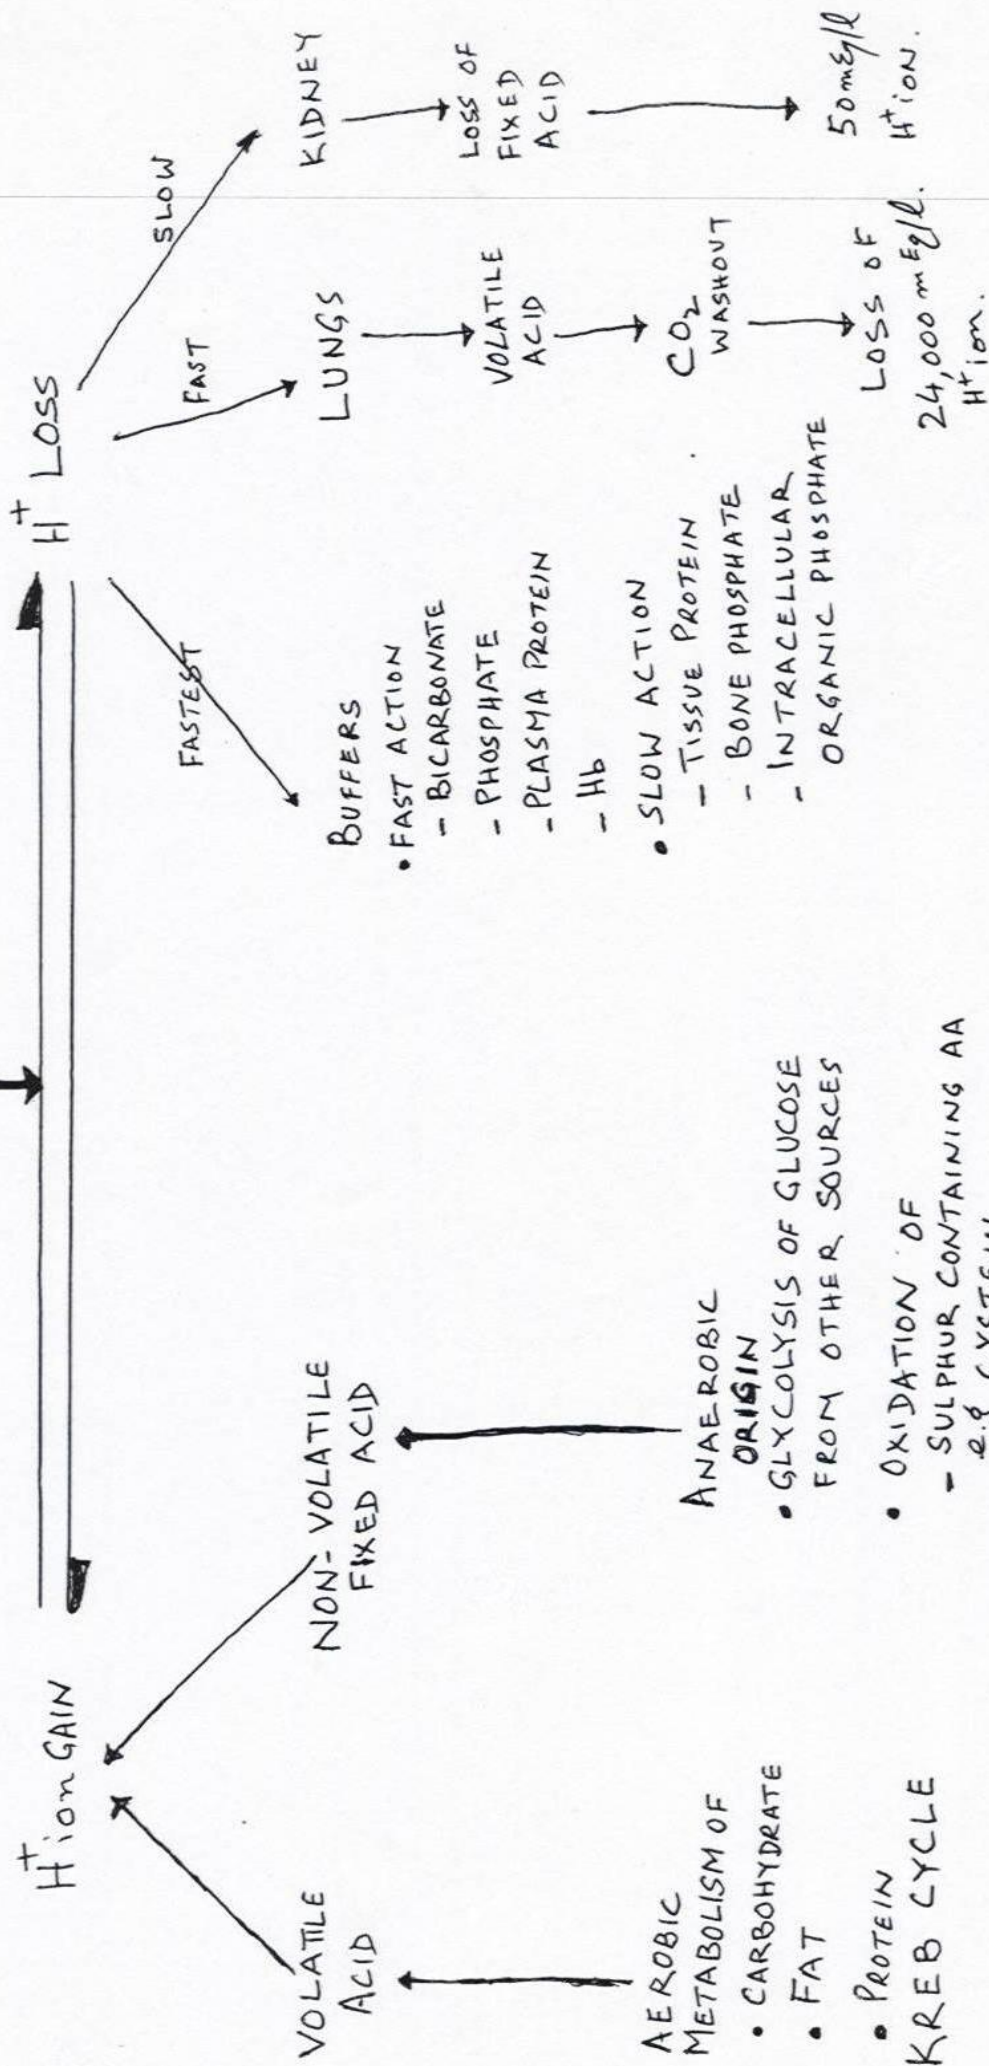 H+ ion GAIN
VOLATILE
ACID
AEROBIC
METABOLISM OF
• CARBOHYDRATE
• FAT
• PROTEIN
KREB CYCLE
NON-VOLATILE
FIXED ACID
ANAEROBIC
ORIGIN
• GLYCOLYSIS OF GLUCOSE
FROM OTHER SOURCES
• OXIDATION OF
- SULPHUR CONTAINING AA
H+ LOSS
FASTEST
BUFFERS
• FAST ACTION
- BICARBONATE
- PHOSPHATE
- PLASMA PROTEIN
- Hb
• SLOW ACTION
- TISSUE PROTEIN
- BONE PHOSPHATE
- INTRACELLULAR
ORGANIC PHOSPHATE
FAST
LUNGS
VOLATILE
ACID
CO2
WASHOUT
LOSS OF
24,000 mEq/l.
H+ ion.
SLOW
KIDNEY
LOSS OF
FIXED
ACID
50 mEq/l
H+ ion.